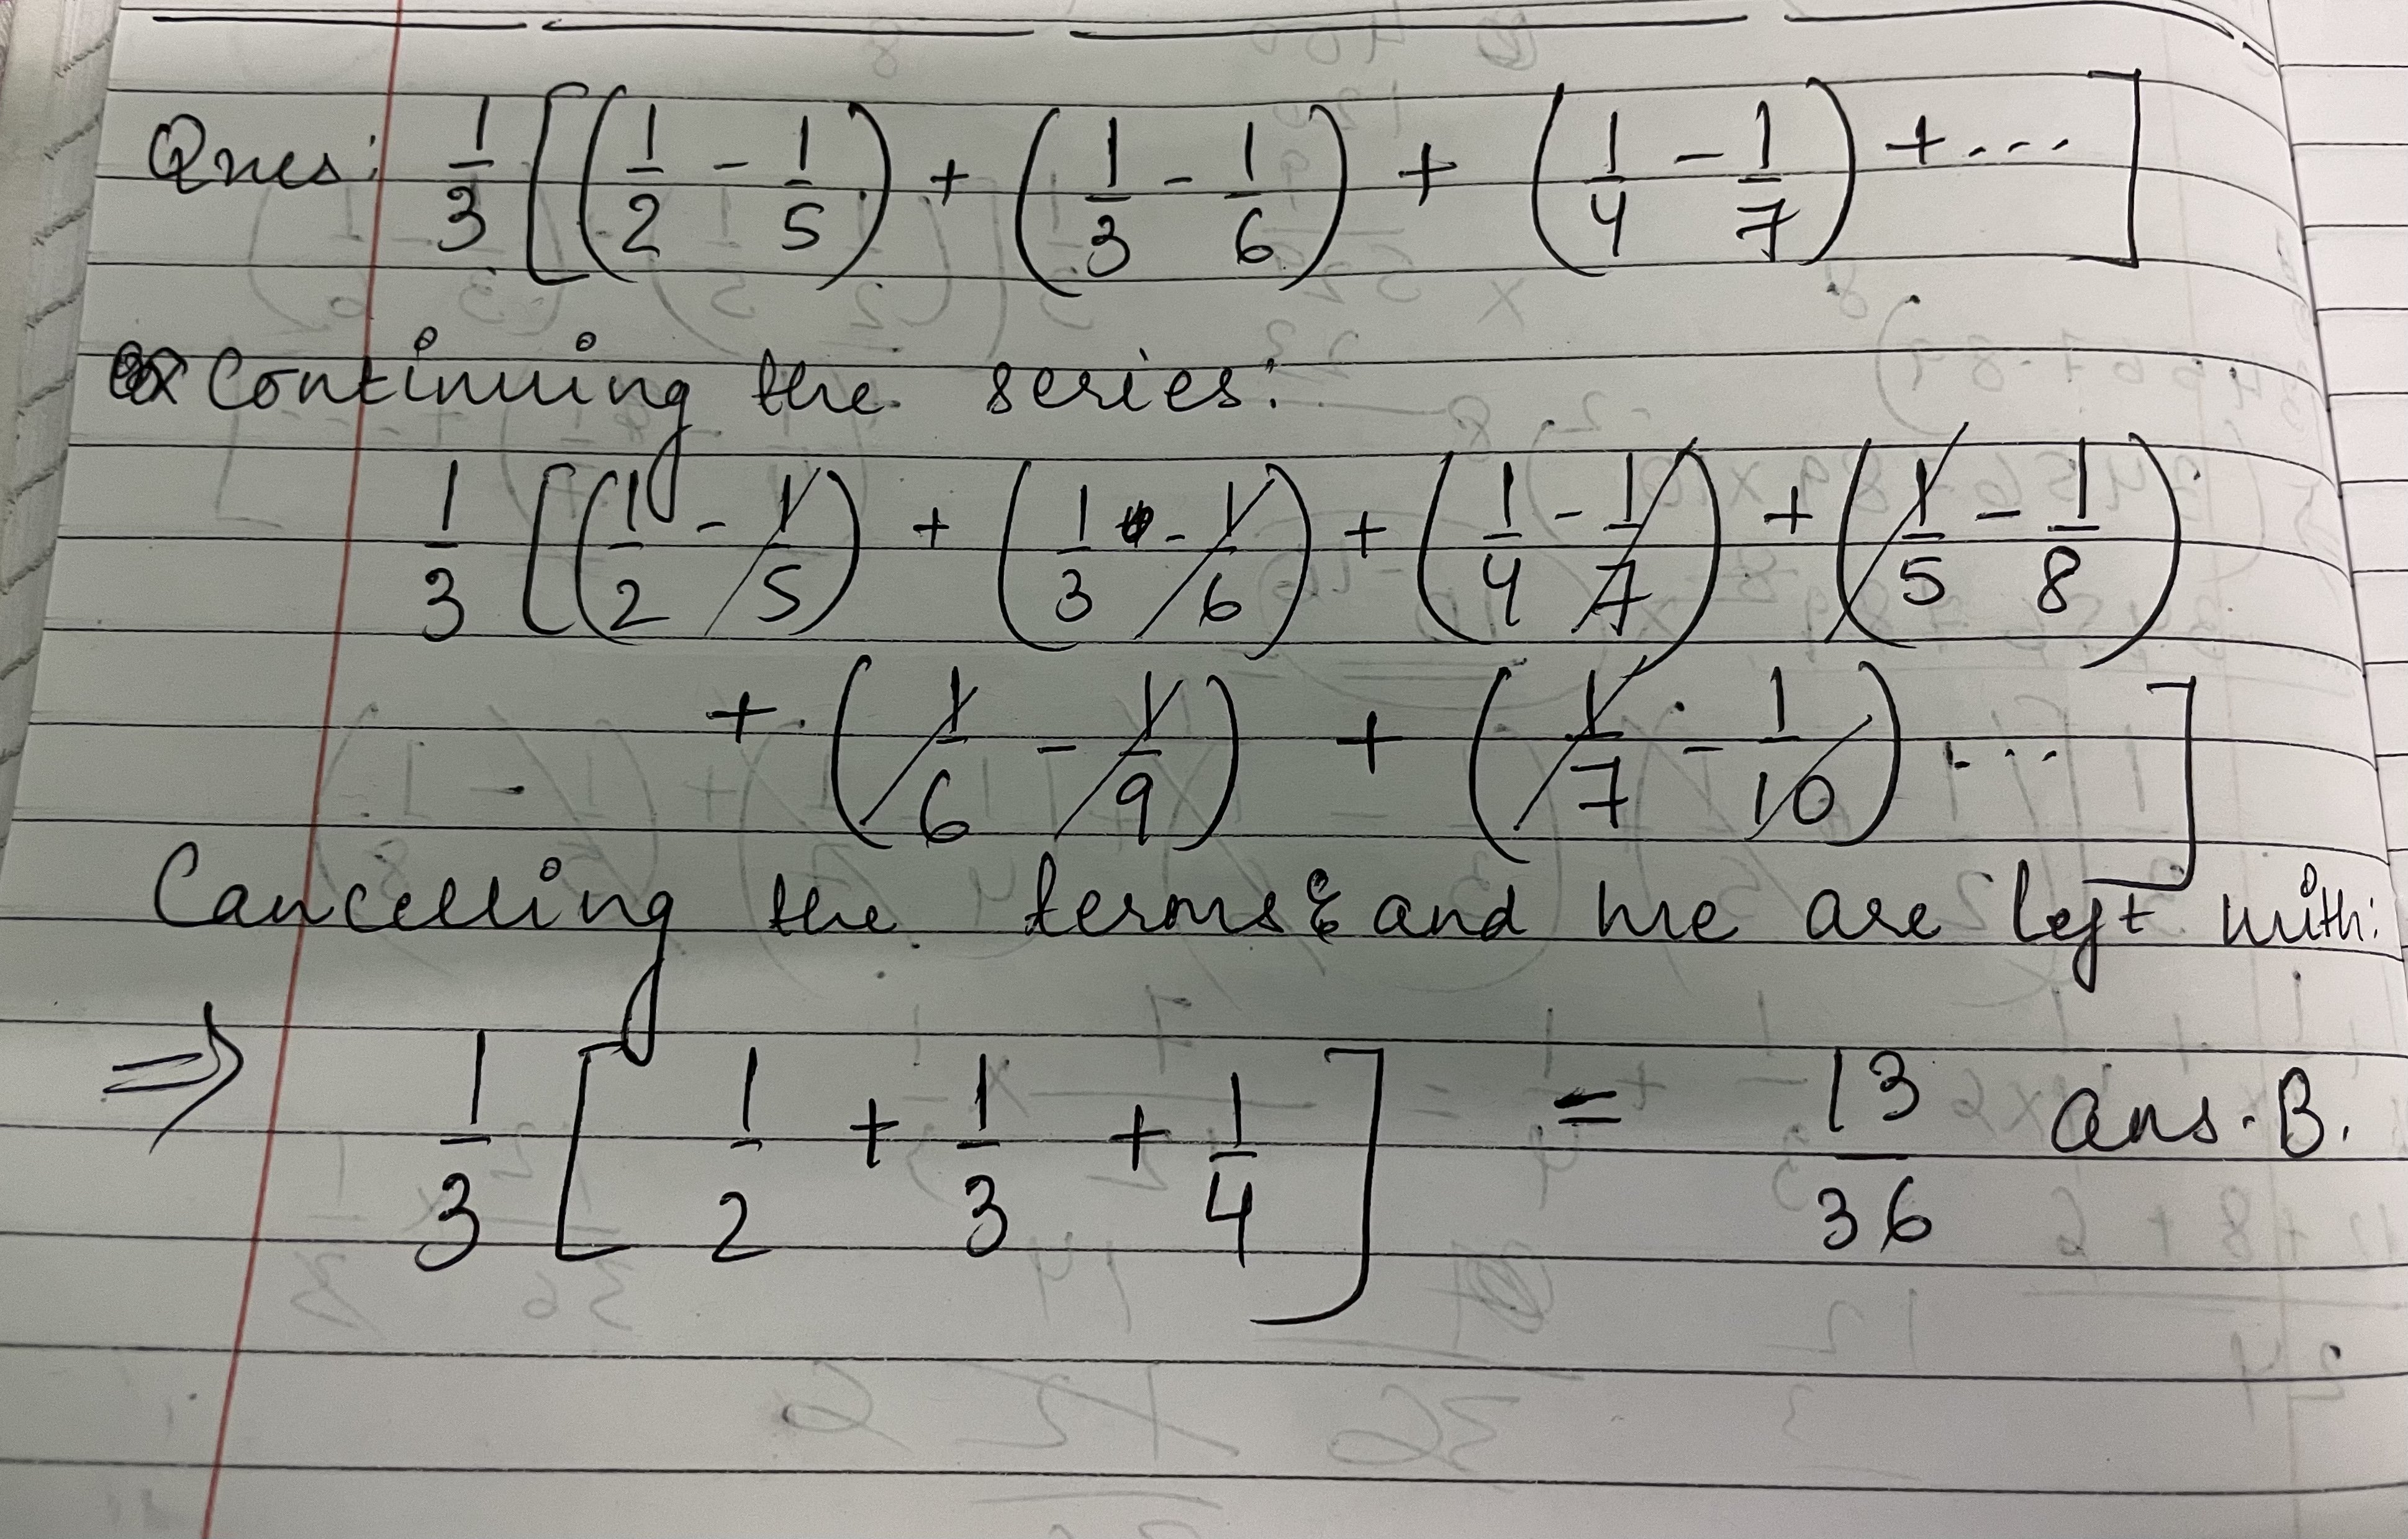 Ques: 1/3 [(1/2 - 1/5) + (1/3 - 1/6) + (1/4 - 1/7) + ...]
Continuing the series:
1/3 [(1/2 - 1/5) + (1/3 - 1/6) + (1/4 - 1/7) + (1/5 - 1/8)
+ (1/6 - 1/9) + (1/7 - 1/10) ... ]
Cancelling the terms & and we are left with:
⇒ 1/3 [ 1/2 + 1/3 + 1/4 ] = 13/36 ans. B.